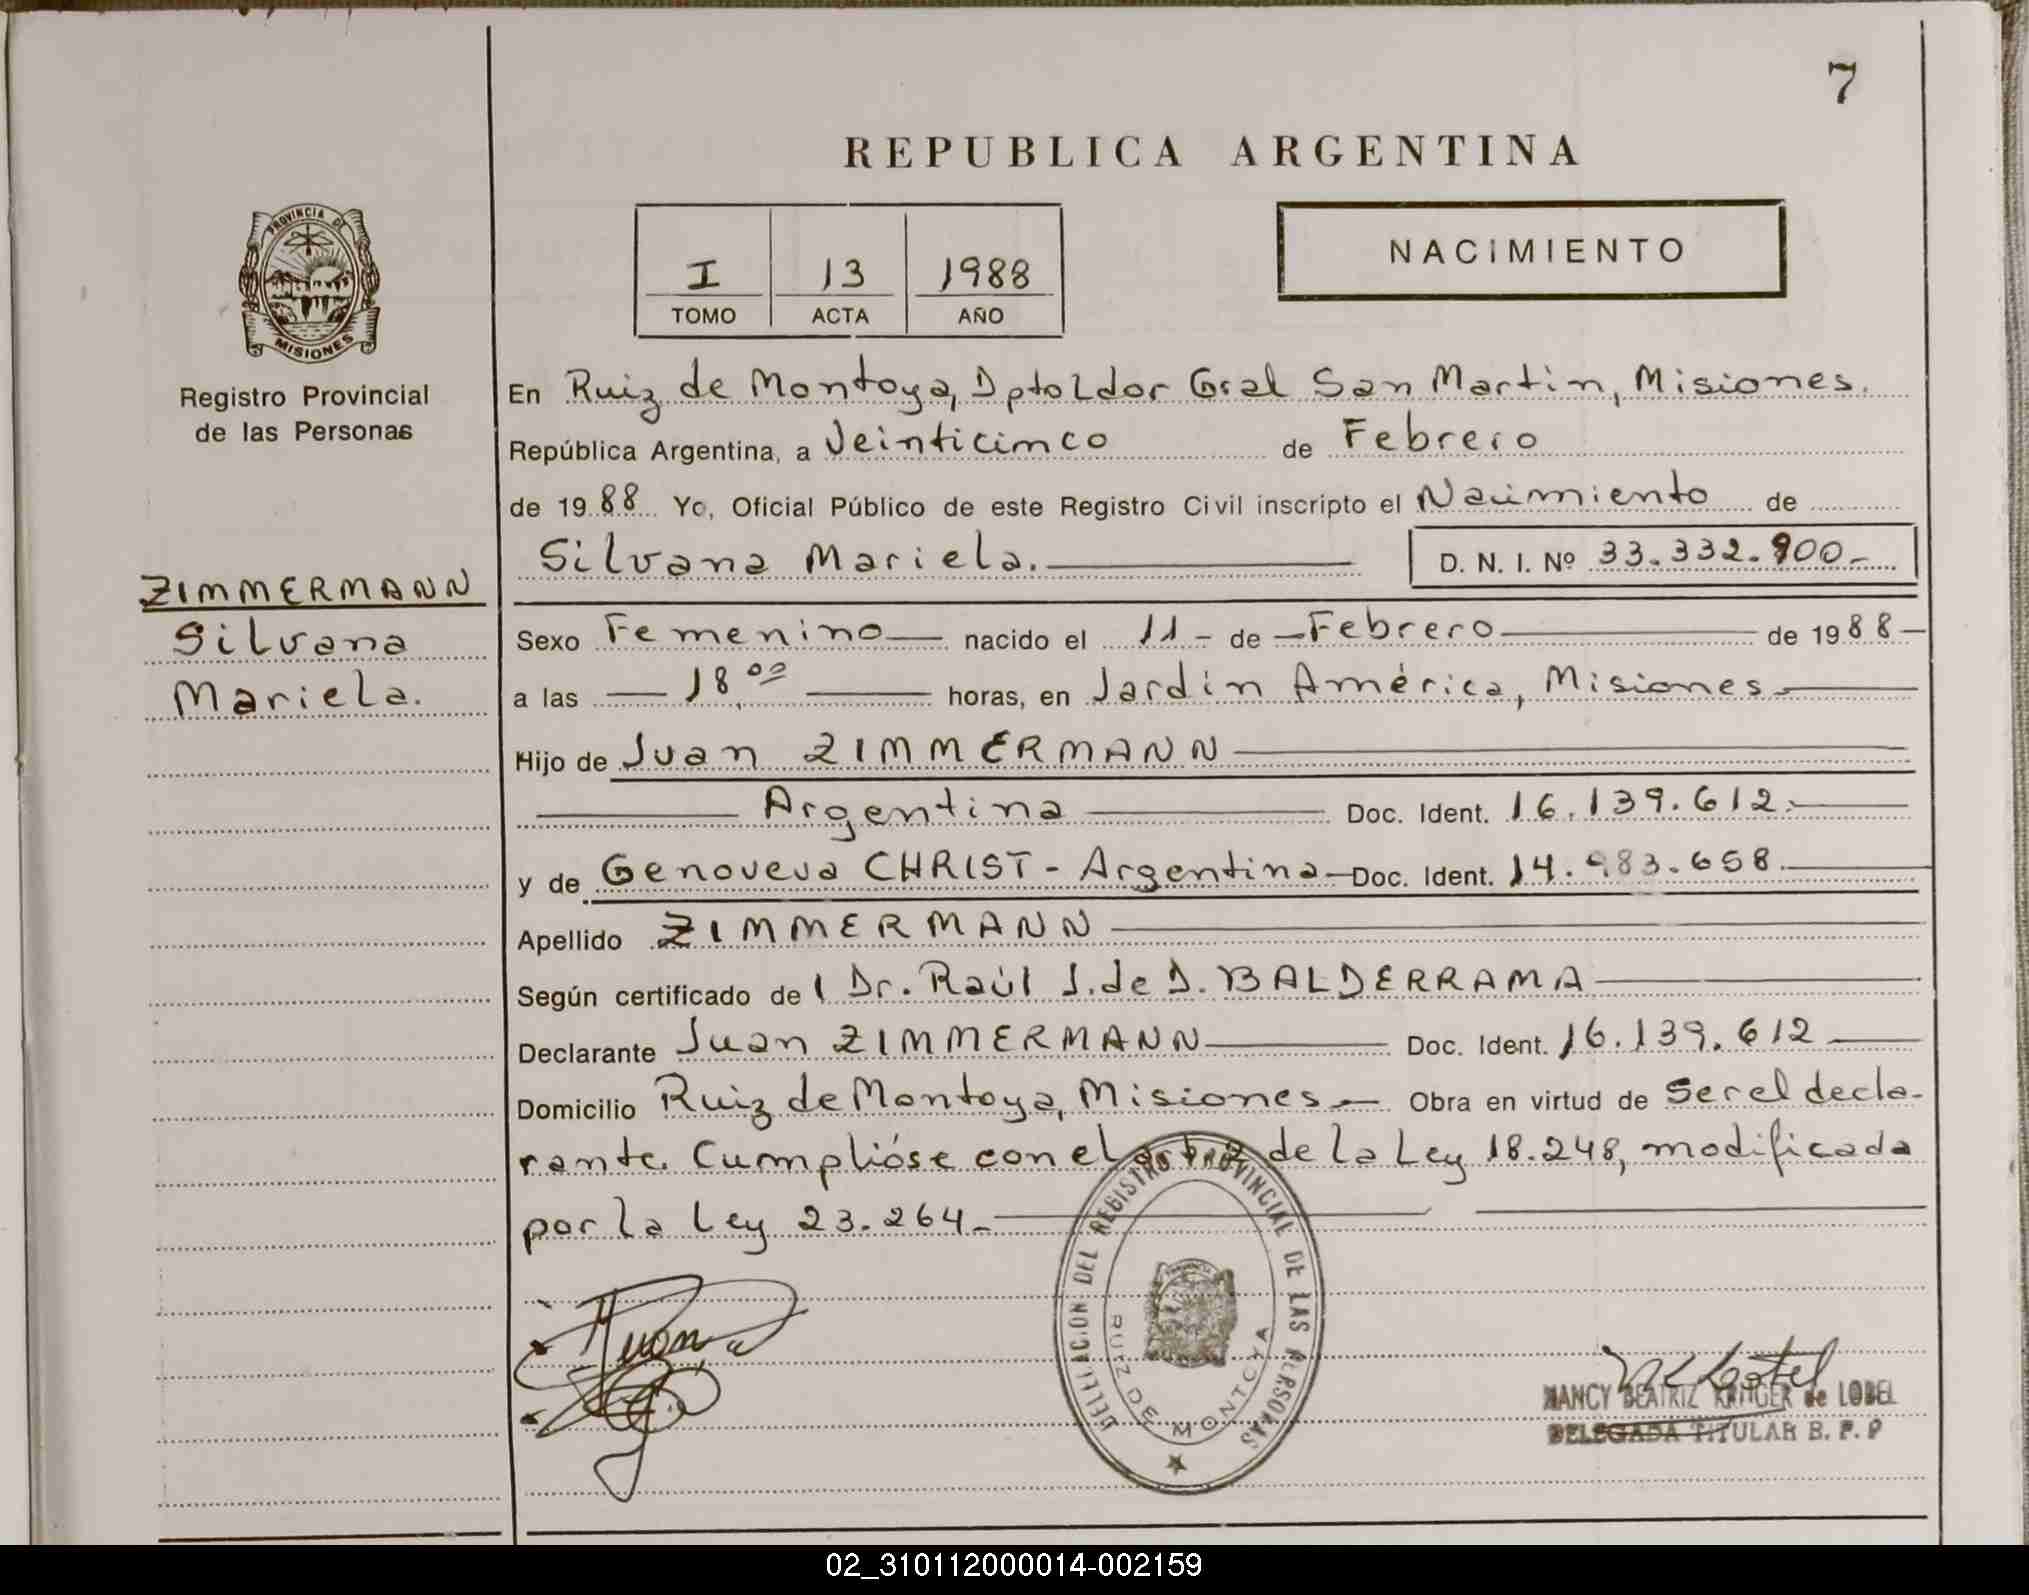 7
REPUBLICA ARGENTINA
PROVINCIA DE
MISIONES
Registro Provincial
de las Personas
I 13 1988
TOMO ACTA AÑO
NACIMIENTO
En Ruiz de Montoya, Dpto Ldor Gral San Martin, Misiones.
República Argentina, a Veinticinco de Febrero
de 1988 Yo, Oficial Público de este Registro Civil inscripto el Nacimiento de
Silvana Mariela. D. N. I. Nº 33.332.900.-
ZIMMERMANN
Silvana
Mariela.
Sexo Femenino nacido el 11 - de - Febrero de 1988
a las 18 00 horas, en Jardin América, Misiones
Hijo de Juan ZIMMERMANN
Argentina Doc. Ident. 16.139.612.
y de Genoveva CHRIST - Argentina - Doc. Ident. 14.983.658
Apellido ZIMMERMANN
Según certificado del Dr. Raúl J. de D. BALDERRAMA
Declarante Juan ZIMMERMANN Doc. Ident. 16.139.612
Domicilio Ruiz de Montoya, Misiones.- Obra en virtud de Ser el decla-
rante. Cumplióse con el art 2 de la Ley 18.248, modificada
por la Ley 23.264.-
DELEGACION DEL REGISTRO PROVINCIAL DE LAS PERSONAS
RUIZ DE MONTOYA
Juan
NANCY BEATRIZ KRINGER de LOBEL
DELEGADA TITULAR B. P. P
02_310112000014-002159